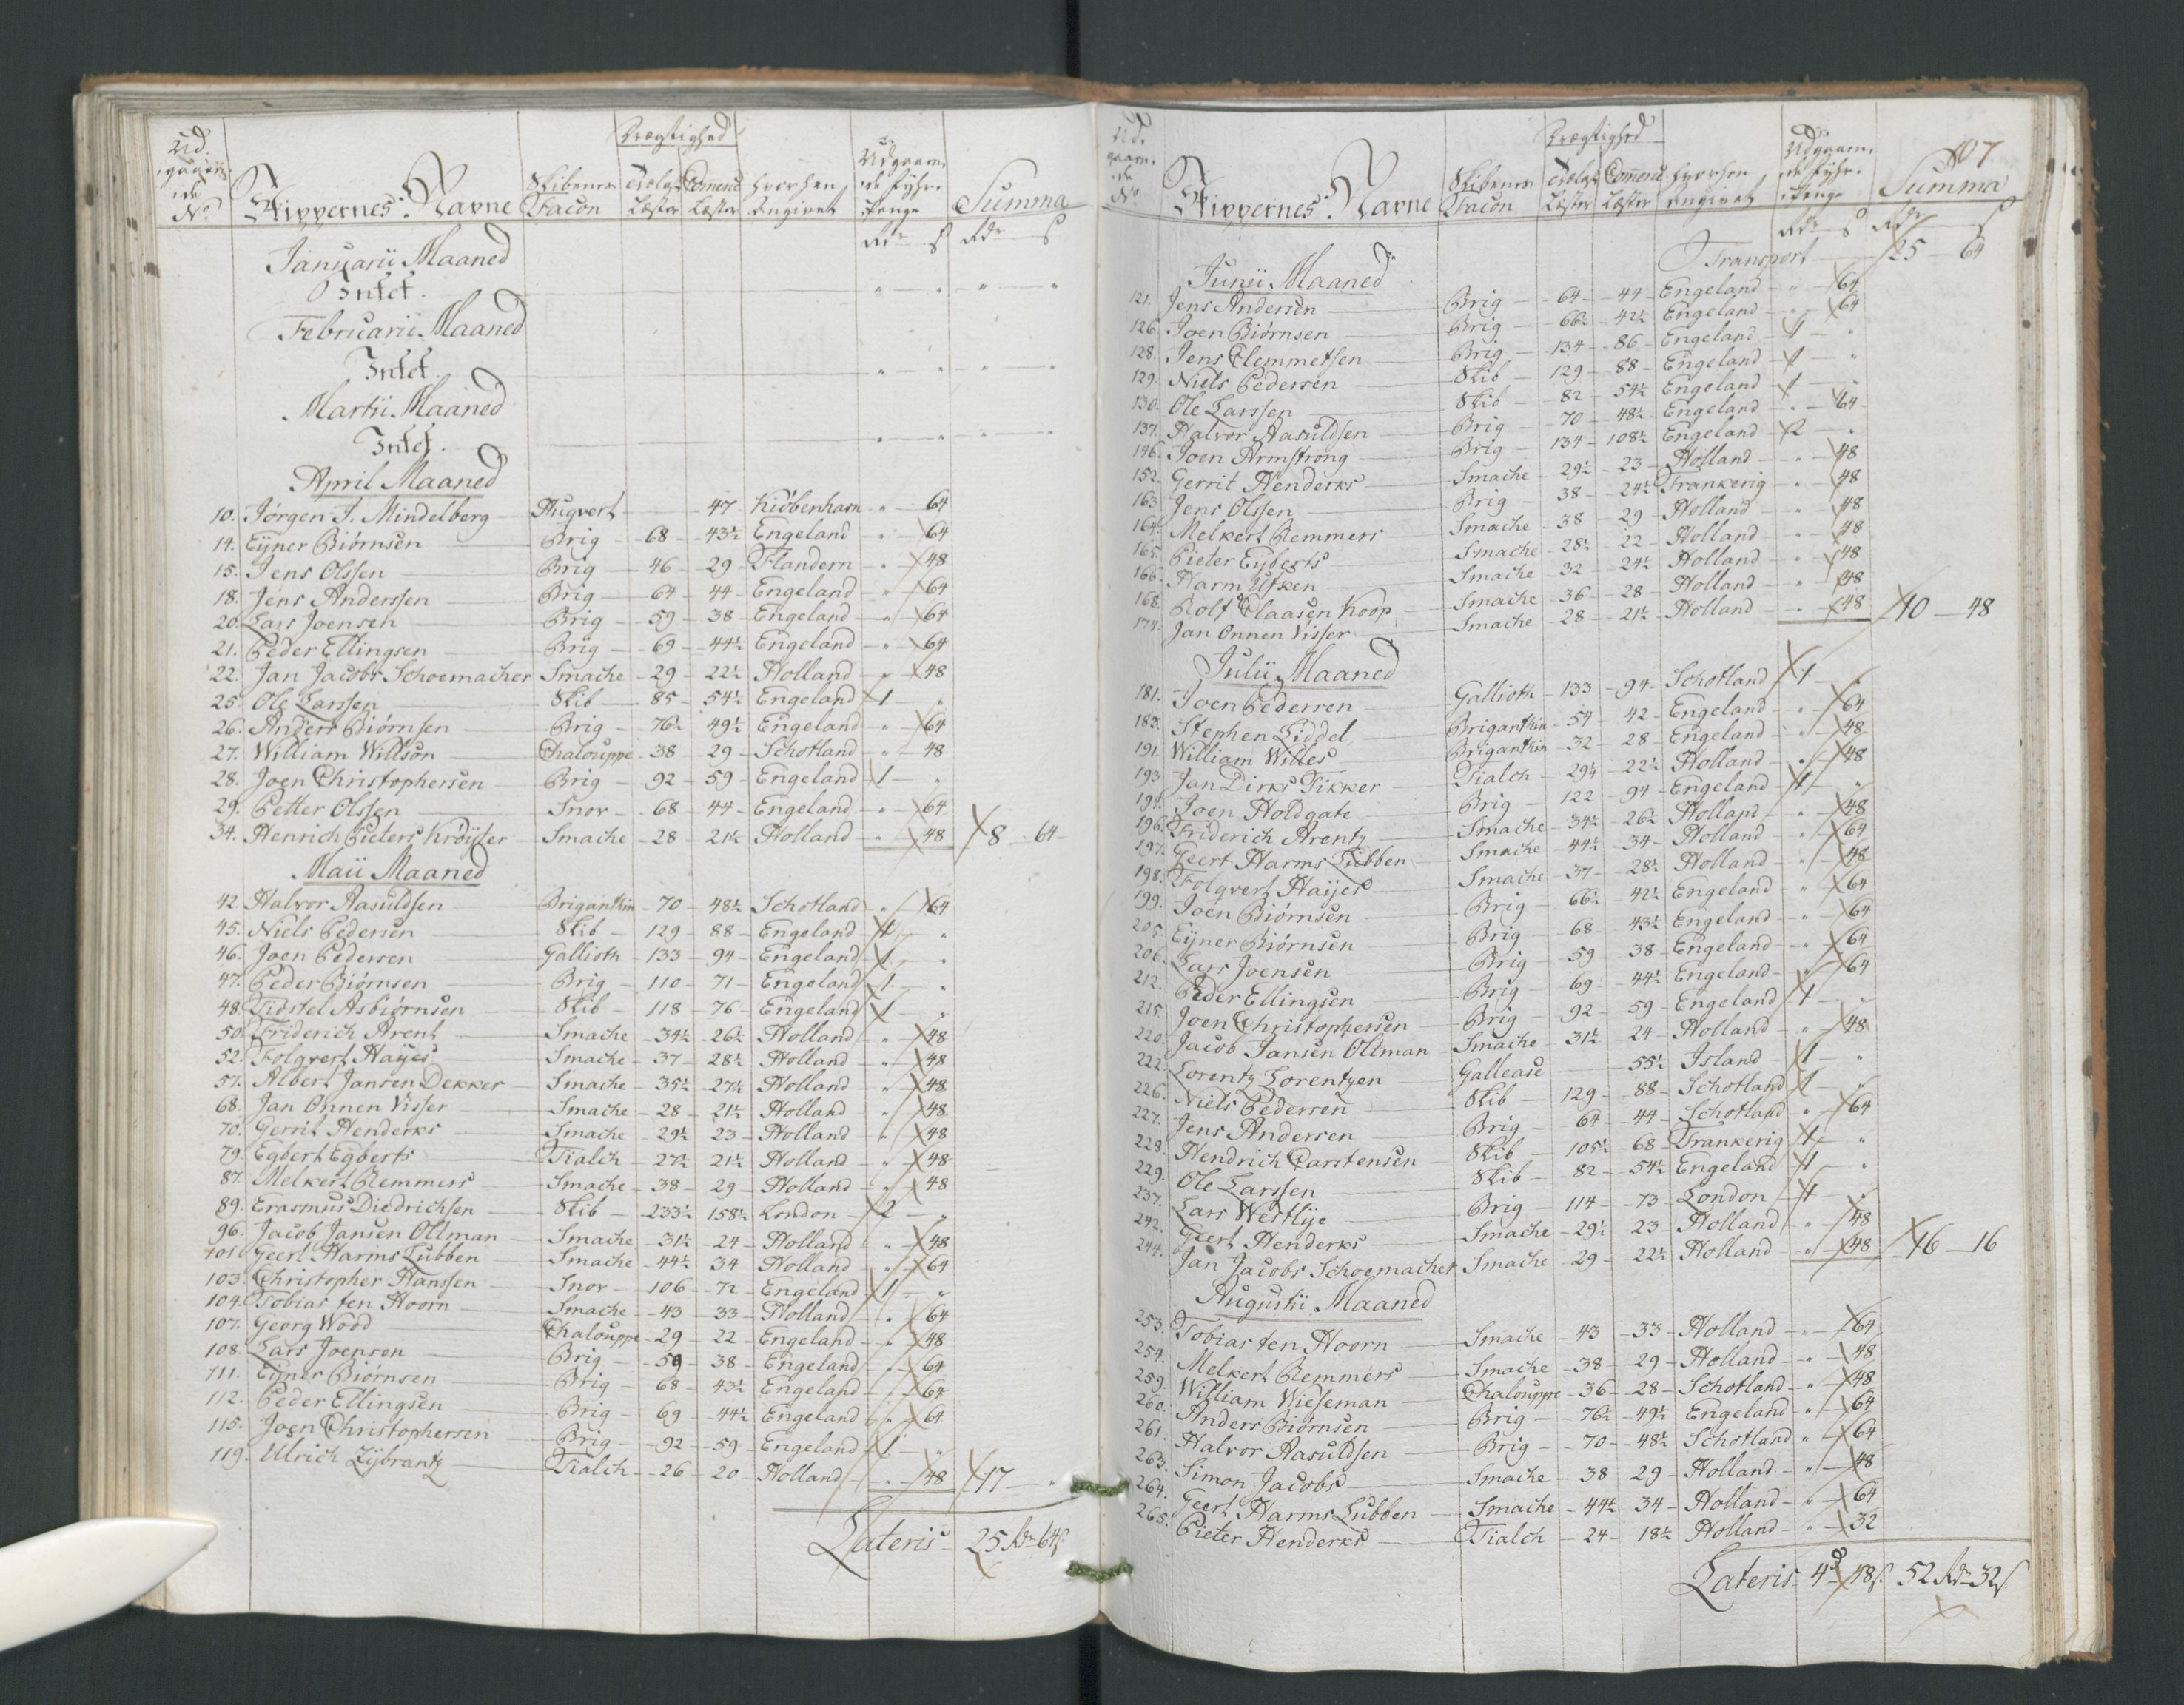 Ud.
gaaen
de
No
Skippernes Navne
Skibenes
Facon
Drægtighed
Træ
Læster
Comerce
Læster
Hvorhen
Angivet
Udgaaen
de Fyhr
Penge
Rdr ß
Summa
Rdr ß
Januarii Maaned
Intet.
Februarii Maaned
Intet.
Martii Maaned
Intet.
April Maaned
10. Jørgen J. Mindelberg Huqvert 47 Kiöbenhavn " 64
14. Eÿner Biørnsen Brig 68 43½ Engeland " 64
15. Jens Olssen Brig 46 29 Flandern " 48
18. Jens Anderssen Brig 64 44 Engeland " 64
20. Lars Joensen Brig 59 38 Engeland " 64
21. Peder Ellingsen Brig 69 44½ Engeland " 64
22. Jan Jacobs Schoemacher Smache 29 22½ Holland " 48
25. Ole Larssen Skib 85 54½ Engeland 1 "
26. Anders Biørnsen Brig 76½ 49½ Engeland " 64
27. William Willson Chalouppe 38 29 Schotland " 48
28. Joen Christophersen Brig 92 59 Engeland 1 "
29. Petter Olssen Snov 68 44 Engeland " 64
34. Henrich Pieters Kröÿter Smache 28 21½ Holland " 48 8 64
Maii Maaned
42 Halvor Aasuldsen Briganthin 70 48½ Schotland " 64
45. Niels Pedersen Skib 129 88 Engeland 1 "
46. Joen Pedersen Gallioth 133 94 Engeland 1 "
47. Peder Biørnsen Brig 110 71 Engeland 1 "
48. Tidstel Asbiørnsen Skib 118 76 Engeland 1 "
50. Friderich Arent Smache 34½ 26½ Holland " 48
52. Folqvert Haÿes Smache 37 28½ Holland " 48
57. Albert Jansen Dekker Smache 35½ 27½ Holland " 48
68. Jan Onnen Visser Smache 28 21½ Holland " 48
70. Gerrit Henderks Smache 29½ 23 Holland " 48
79. Egbert Egberts Tialch 27½ 21½ Holland " 48
87. Melkert Remmers Smache 38 29 Holland " 48
89. Erasmus Diedrichsen Skib 233½ 158½ London 2 "
96. Jacob Jansen Oltman Smache 31½ 24 Holland " 48
101 Geert Harms Lubben Smache 44½ 34 Holland " 64
103. Christopher Hanssen Snov 106 72 Engeland 1 "
104. Tobias ten Hoorn Smache 43 33 Holland " 64
107. Georg Wood Chalouppe 29 22 Engeland " 48
108. Lars Joensen Brig 59 38 Engeland " 64
111. Eÿner Biørnsen Brig 68 43½ Engeland " 64
112. Peder Ellingsen Brig 69 44½ Engeland " 64
115. Joen Christophersen Brig 92 59 Engeland 1 "
119. Ulrich Zÿbrantz Tialch 26 20 Holland " 48 17 "
Lateris 25 Rdr 64 ß.
107
Ud.
gaaen
de
No
Skippernes Navne
Skibenes
Facon
Drægtighed
Træ
Læster
Comerce
Læster
Hvorhen
Angivet
Udgaaen
de Fyhr
Penge
Rdr ß
Summa
Rdr ß
Transport 25 64
Junii Maaned
121. Jens Andersen Brig 64 44 Engeland " 64
126. Joen Biørnsen Brig 66½ 42½ Engeland " 64
128. Jens Clemmetsen Brig 134 86 Engeland 1 "
129. Niels Pedersen Skib 129 88 Engeland 1 "
130. Ole Larssen Skib 82 54½ Engeland 1 "
137. Halvor Aasuldsen Brig 70 48½ Engeland " 64
146. Joen Armstrong Brig 134 108½ Engeland 2 "
152. Gerrit Henderks Smache 29½ 23 Holland " 48
163 Jens Olssen Brig 38 24½ Frankerig " 48
164. Melkert Remmers Smache 38 29 Holland " 48
165. Pieter Eÿberts Smache 28½ 22 Holland " 48
166. Harm Ufken Smache 32 24½ Holland " 48
168. Rolf Claasen Koop Smache 36 28 Holland " 48
174. Jan Onnen Visser Smache 28 21½ Holland " 48 10 48
Julii Maaned
181. Joen Pedersen Gallioth 133 94 Schotland 1 "
183. Stephen Liddel Briganthin 54 42 Engeland " 64
191. William Willes Briganthin 32 28 Engeland " 48
193 Jan Dirks Fikker Tialch 29½ 22½ Holland " 48
194. Joen Holdgate Brig 122 94 Engeland 1 "
196. Friderich Arentz Smache 34½ 26½ Holland " 48
197. Geert Harms Lubben Smache 44½ 34 Holland " 64
198. Folqvert Haÿes Smache 37 28½ Holland " 48
199. Joen Biørnsen Brig 66½ 42½ Engeland " 64
205. Eÿner Biørnsen Brig 68 43½ Engeland " 64
206. Lars Joensen Brig 59 38 Engeland " 64
212. Peder Ellingsen Brig 69 44½ Engeland " 64
215. Joen Christophersen Brig 92 59 Engeland 1 "
220. Jacob Jansen Oltman Smache 31½ 24 Holland " 48
222. Lorentz Lorentzen Gallease 55½ Island 1 "
226. Niels Pedersen Skib 129 88 Schotland 1 "
227. Jens Andersen Brig 64 44 Schotland " 64
228. Hendrich Carstensen Skib 105½ 68 Frankerig 1 "
229. Ole Larssen Skib 82 54½ Engeland 1 "
237. Lars Westlÿe Brig 114 73 London 1 "
242. Geert Henderks Smache 29½ 23 Holland " 48
244. Jan Jacobs Schoemacher Smache 29 22½ Holland " 48 16 16
Augustii Maaned
253. Tobias ten Hoorn Smache 43 33 Holland " 64
254. Melkert Remmers Smache 38 29 Holland " 48
259. William Wieseman Chalouppe 36 28 Schotland " 48
260. Anders Biørnsen Brig 76½ 49½ Engeland " 64
261. Halvor Aasuldsen Brig 70 48½ Schotland " 64
263. Simon Jacobs Smache 38 29 Holland " 48
264. Geert Harms Lubben Smache 44½ 34 Holland " 64
265. Pieter Henderks Tialch 24 18½ Holland " 32
Lateris 4 48 ß. 52 Rdr 32 ß.